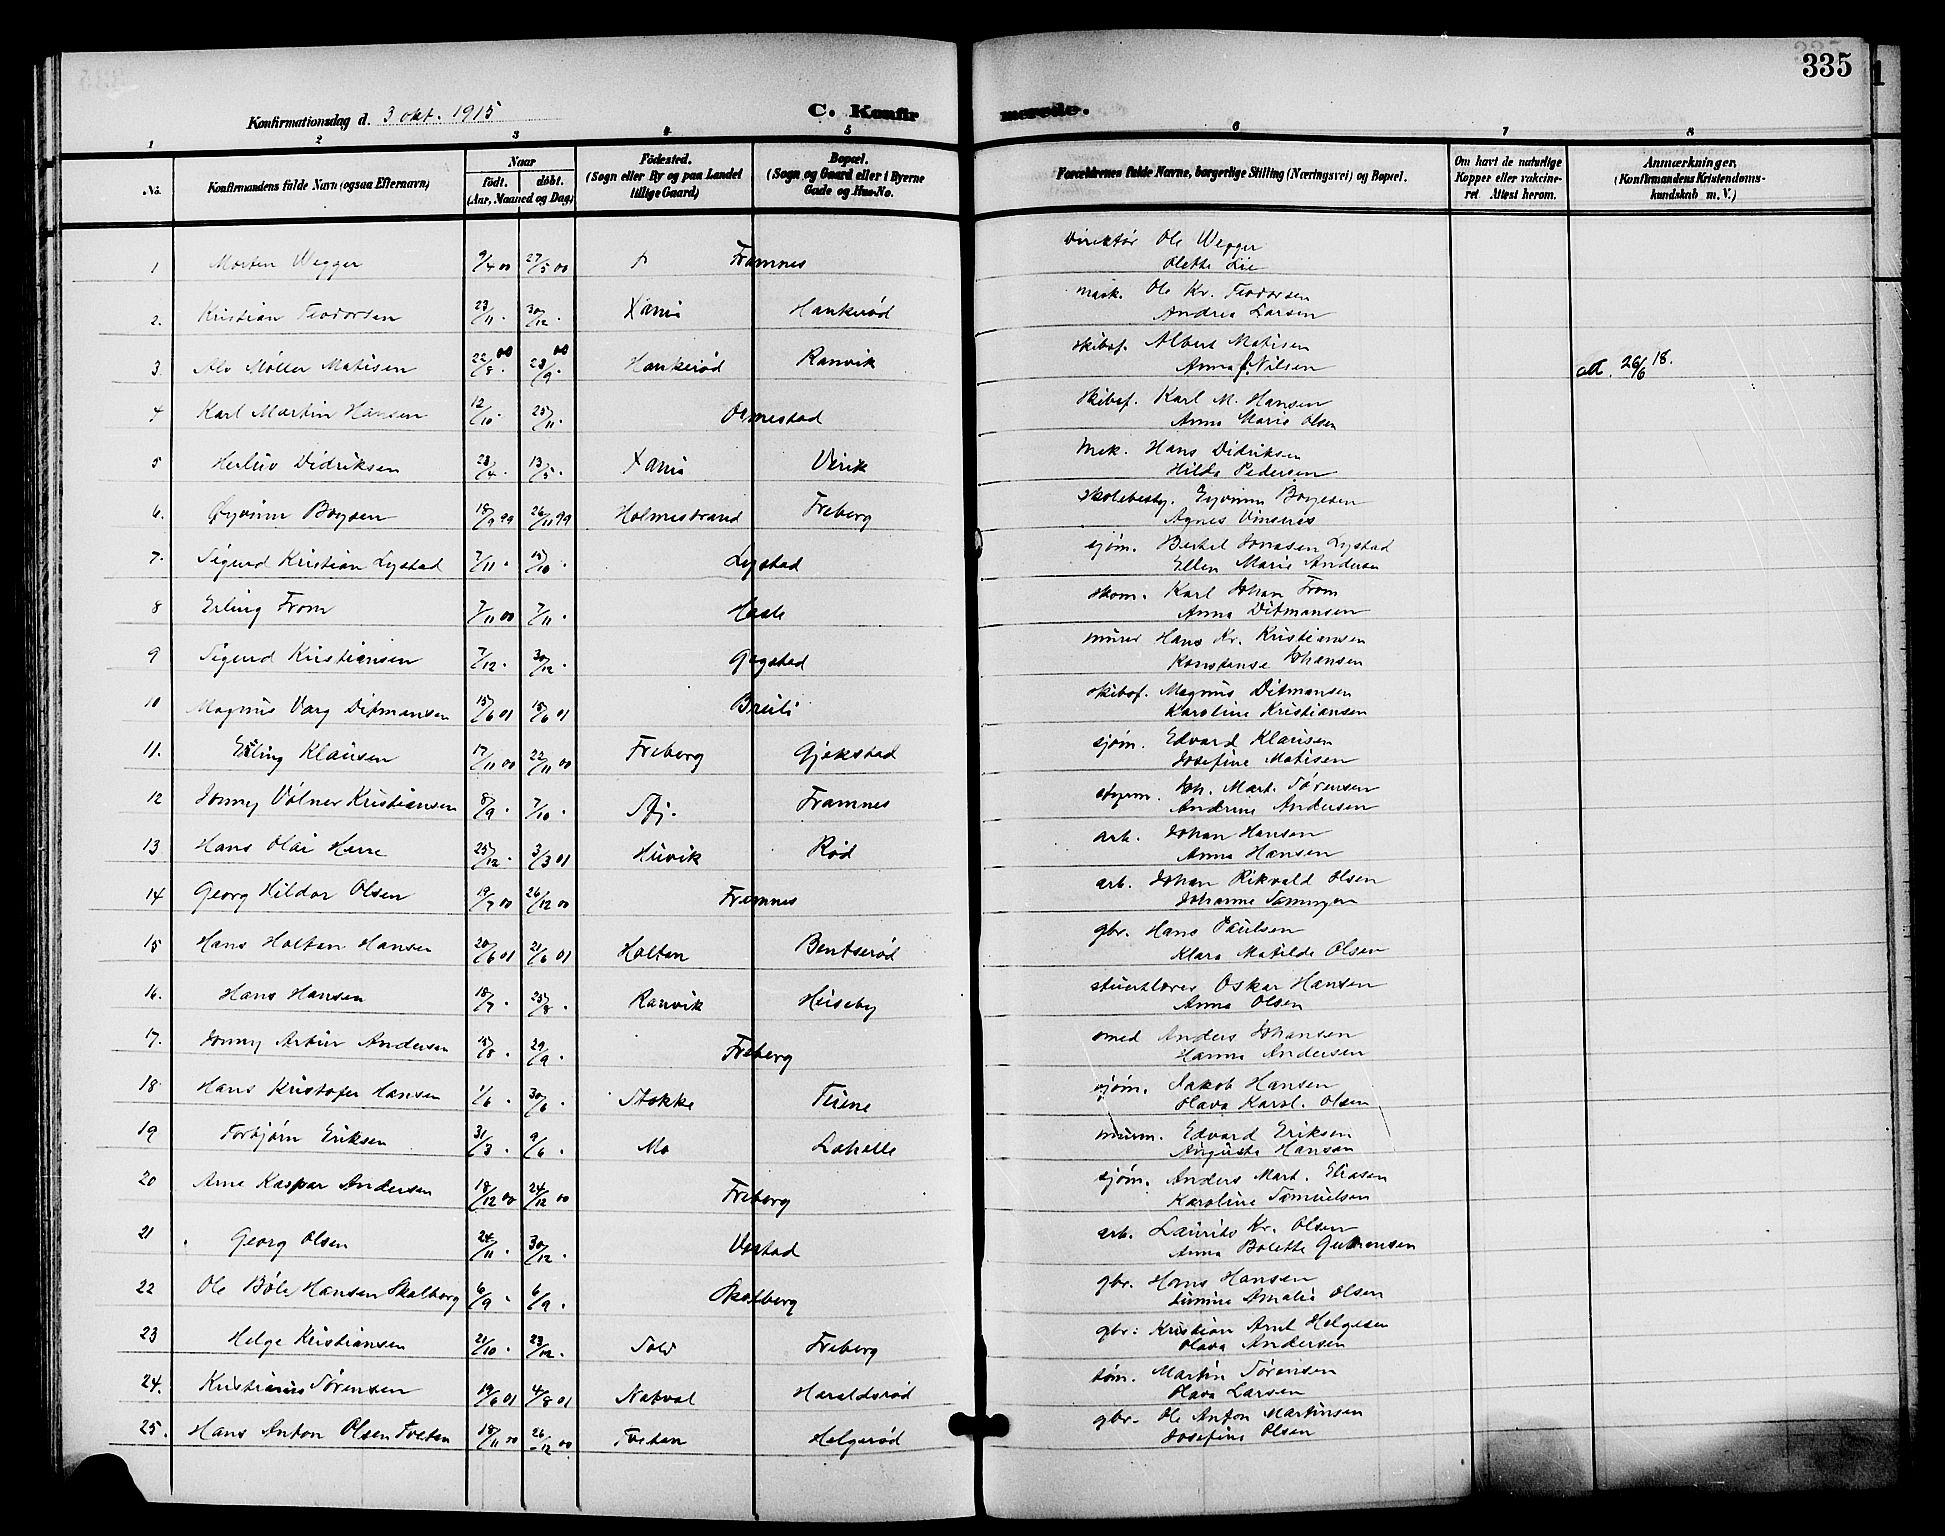 335
Konfirmationsdag d. 3 okt. 1915
C. Konfirmerede.
1 2 3 4 5 6 7 8
No.
Konfirmandens fulde Navn (ogsaa Efternavn)
Naar
födt. döbt.
(Aar, Maaned og Dag)
Födested.
(Sogn eller By og paa Landet
tillige Gaard)
Bopæl.
(Sogn og Gaard eller i Byerne
Gade og Hus-No.
Forældrenes fulde Navne, borgerlige Stilling (Næringsvei) og Bopæl.
Om havt de naturlige
Kopper eller vakcine-
ret Attest herom.
Anmærkninger.
(Konfirmandens Kristendoms-
kundskab m. V.)
1 Morten Wegger 9/4 00 27/5 00 Framnes Direktør Ole Wegger
Olette Lie
2. Kristian Teodorsen 23/11. 30/12. Xania Haukerød mask. Ole Kr. Teodorsen
Andrea Larsen
3. Alv Møller Matisen 22/8. 00 23/9. 00 Haukerød Ranvik skibsf. Albert Matisen
Anna f. Nilsen ad. 26/6 18.
4 Karl Martin Hansen 12/10. 25/11. Ormestad skibsf. Karl M. Hansen
Anna Marie Olsen
5 Herluv Didriksen 23/4. 13/5. Xania Virik mek. Hans Didriksen
Hilda Pedersen
6. Øyvinn Boysen 18/9 99 26/11 99 Holmestrand Freberg skolebesty. Eyvinn Boyesen
Agnes
7. Sigurd Kristian Lystad 7/11. 15/10. Lystad sjøm. Bertel Jonasen Lystad
Ellen Marie Andersen
8 Erling From 7/11 00 7/11. Hasle skom. Karl Johan From
Anna Ditmansen
9 Sigurd Kristiansen 7/12. 30/12. Gogstad murer Hans Kr. Kristiansen
Konstanse Johansen
10 Magnus Varg Ditmansen 15/6 01 15/6 01 Breili skibsf. Magnus Ditmansen
Karoline Kristiansen
11. Erling Klausen 17/11 00 22/11 00 Freberg Gjekstad sjøm. Edvard Klausen
Josefine Matisen
12 Jonny Volner Kristiansen 8/9. 7/10. Sfj. Framnes styrm. Joh. Mart. Sørensen
Andrine Andersen
13 Hans Olai Herre 25/12. 3/3 01 Huvik Rød arb. Johan Hansen
Anna Hansen
14 Georg Hildor Olsen 19/7 00 26/12 00 Framnes arb. Johan Rikvald Olsen
Johanne
15 Hans Holtan Hansen 20/6 01 21/6 01 Holtan Bentserød gbr. Hans Paulsen
Klara Matilde Olsen
16. Hans Hansen 18/7. 25/8. Ranvik Huseby Oskar Hansen
Anna Olsen
17. Jonny Artur Andersen 15/8. 29/9. Freberg smed Anders Johansen
Hanna Andersen
18 Hans Kristofer Hansen 1/6. 30/6. Stokke Furne sjøm. Jakob Hansen
Olava Karol. Olsen
19 Torbjørn Eriksen 31/3. 9/6. Mo Lahelle murm. Edvard Eriksen
Augusta Hansen
20 Arne Kaspar Andersen 18/12 00 24/12 00 Freberg sjøm. Anders Mart. Eliasen
Karoline Samuelsen
21 Georg Olsen 24/11. 30/12. Vestad arb. Laurits Kr. Olsen
Anna Bolette
22 Ole Bøle Hansen Skalberg 6/9. 6/9. Skalberg gbr. Hans Hansen
Amalie Olsen
23 Helge Kristiansen 21/10. 23/12. Solv Freberg gbr. Kristian Arnt Helgesen
Olava Andersen
24. Kristianius Sørensen 19/6 01 4/8 01 Natval Haraldsrød tøm. Martin Sørensen
Olava Larsen
25. Hans Anton Olsen Tveitan 18/11 00 26/12 00 Tveitan Helgerød gbr. Ole Anton Martinsen
Josefine Olsen